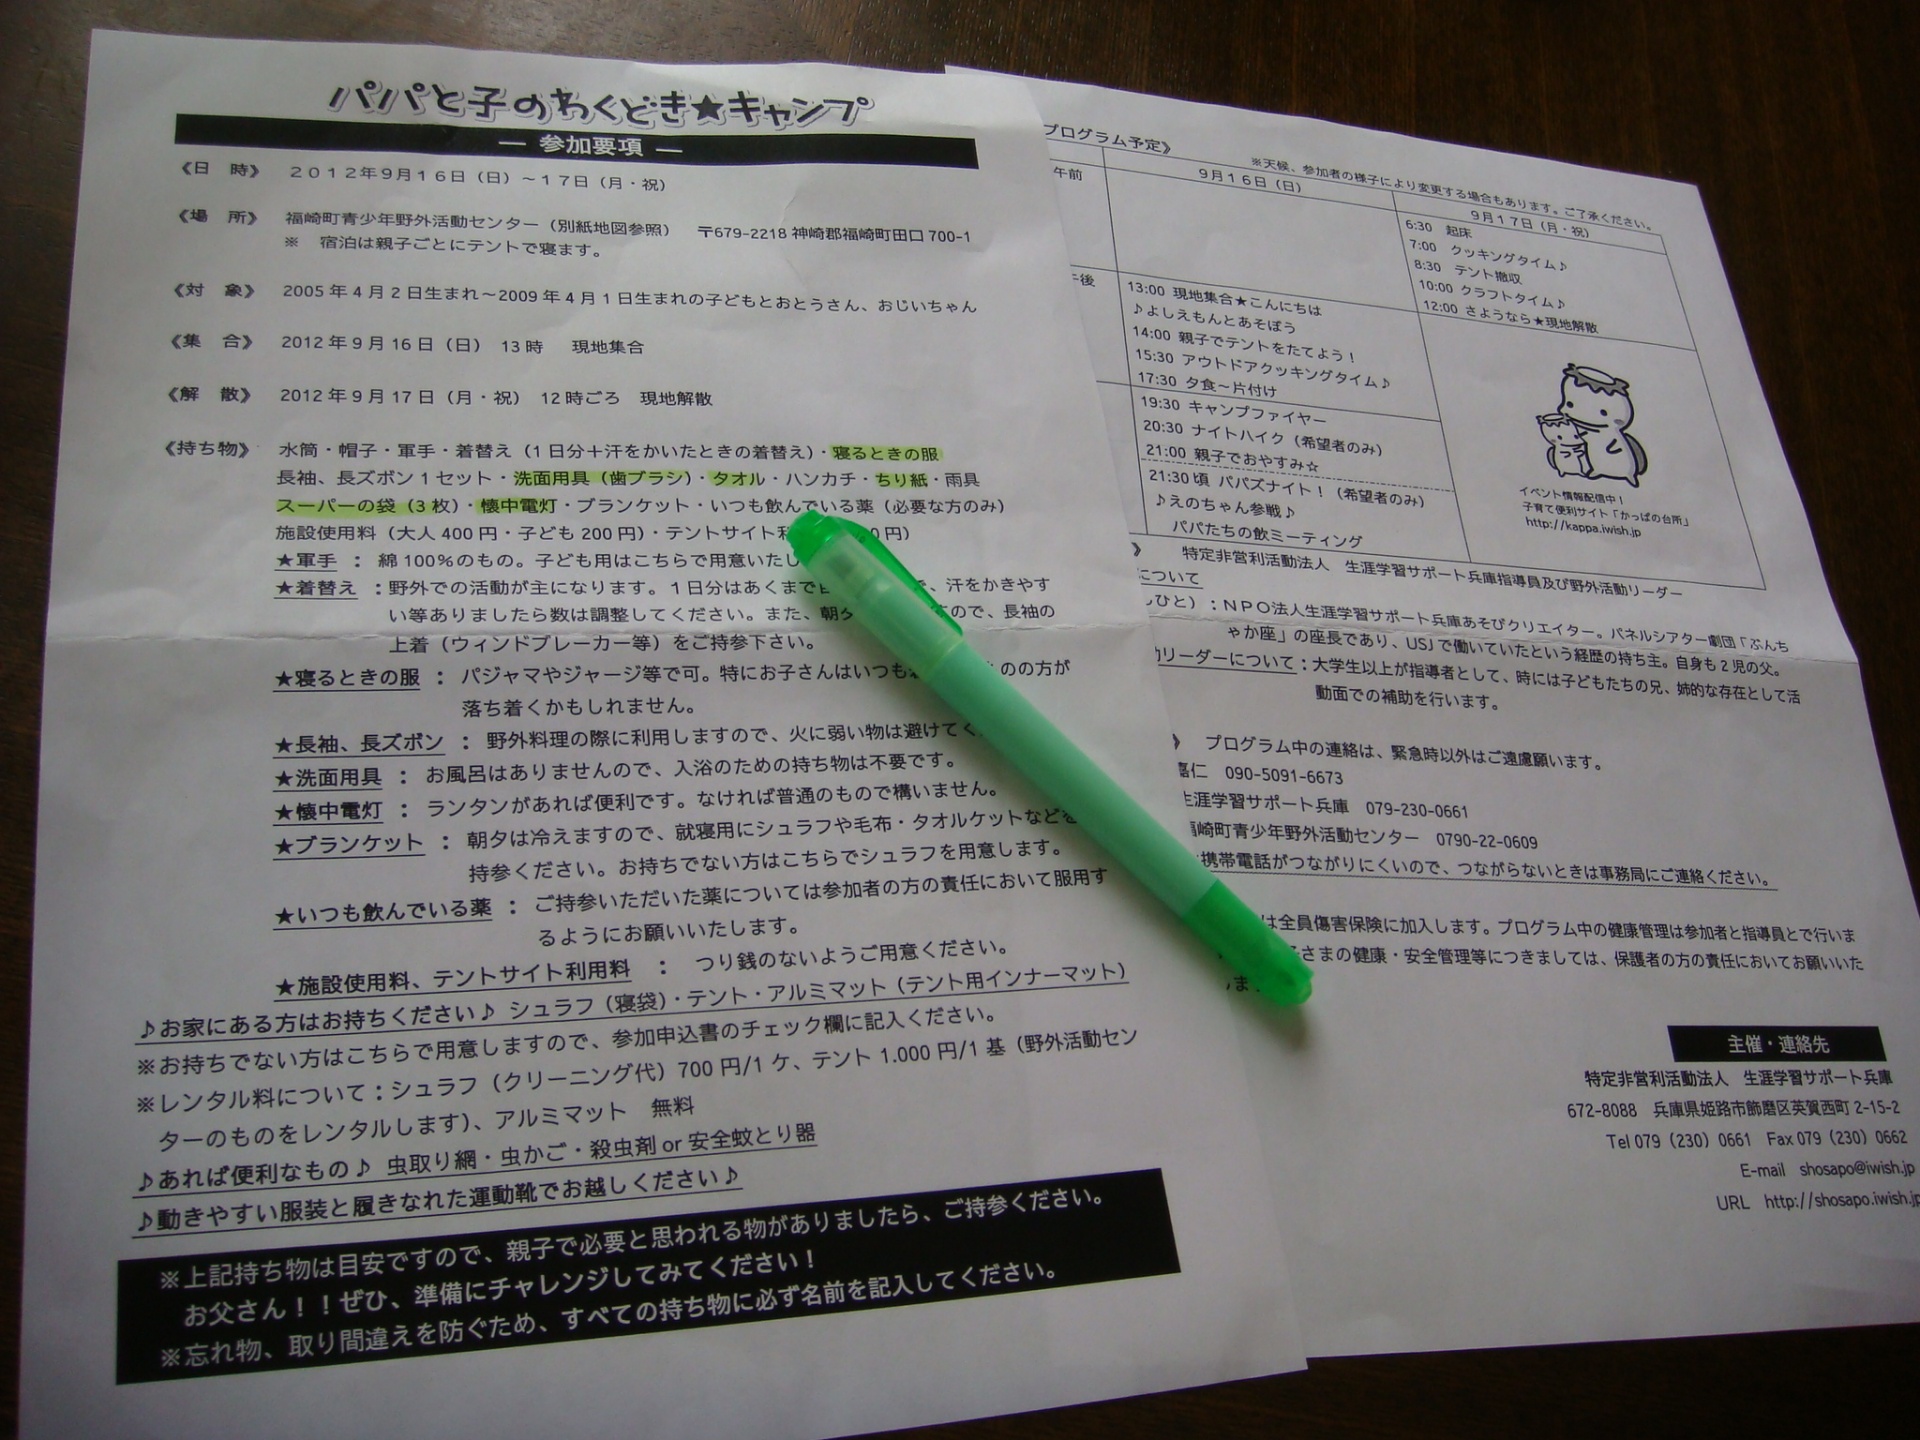 パパと子のわくどき★キャンプ
― 参加要項 ―
《日　時》　２０１２年９月１６日（日）～１７日（月・祝）
《場　所》　福崎町青少年野外活動センター（別紙地図参照）　〒679-2218 神崎郡福崎町田口 700-1
※　宿泊は親子ごとにテントで寝ます。
《対　象》　2005 年 4 月 2 日生まれ～2009 年 4 月 1 日生まれの子どもとおとうさん、おじいちゃん
《集　合》　2012 年 9 月 16 日（日）　13 時　　現地集合
《解　散》　2012 年 9 月 17 日（月・祝）　12 時ごろ　現地解散
《持ち物》　水筒・帽子・軍手・着替え（１日分＋汗をかいたときの着替え）・寝るときの服
長袖、長ズボン 1 セット・洗面用具（歯ブラシ）・タオル・ハンカチ・ちり紙・雨具
スーパーの袋（3 枚）・懐中電灯・ブランケット・いつも飲んでいる薬（必要な方のみ）
施設使用料（大人 400 円・子ども 200 円）・テントサイト利 0 円）
★軍手　：　綿 100％のもの。子ども用はこちらで用意いたし
★着替え　：野外での活動が主になります。１日分はあくまで 、汗をかきやす
い等ありましたら数は調整してください。また、朝夕 すので、長袖の
上着（ウィンドブレーカー等）をご持参下さい。
★寝るときの服　：　パジャマやジャージ等で可。特にお子さんはいつも ものの方が
落ち着くかもしれません。
★長袖、長ズボン　：　野外料理の際に利用しますので、火に弱い物は避けてく
★洗面用具　：　お風呂はありませんので、入浴のための持ち物は不要です。
★懐中電灯　：　ランタンがあれば便利です。なければ普通のもので構いません。
★ブランケット　：　朝夕は冷えますので、就寝用にシュラフや毛布・タオルケットなどを
持参ください。お持ちでない方はこちらでシュラフを用意します。
★いつも飲んでいる薬　：　ご持参いただいた薬については参加者の方の責任において服用す
るようにお願いいたします。
★施設使用料、テントサイト利用料　：　つり銭のないようご用意ください。
♪お家にある方はお持ちください♪ シュラフ（寝袋）・テント・アルミマット（テント用インナーマット）
※お持ちでない方はこちらで用意しますので、参加申込書のチェック欄に記入ください。
※レンタル料について：シュラフ（クリーニング代）700 円/1 ケ、テント 1.000 円/1 基（野外活動セン
ターのものをレンタルします)、アルミマット　無料
♪あれば便利なもの♪ 虫取り網・虫かご・殺虫剤 or 安全蚊とり器
♪動きやすい服装と履きなれた運動靴でお越しください♪
※上記持ち物は目安ですので、親子で必要と思われる物がありましたら、ご持参ください。
お父さん！！ぜひ、準備にチャレンジしてみてください！
※忘れ物、取り間違えを防ぐため、すべての持ち物に必ず名前を記入してください。
プログラム予定》
※天候、参加者の様子により変更する場合もあります。ご了承ください。
9月１６日（日）
9月１７日（月・祝）
午前
6:30　起床
7:00　クッキングタイム♪
8:30　テント撤収
10:00 クラフトタイム♪
12:00 さようなら★現地解散
午後
13:00 現地集合★こんにちは
♪よしえもんとあそぼう
14:00 親子でテントをたてよう！
15:30 アウトドアクッキングタイム♪
17:30 夕食～片付け
19:30 キャンプファイヤー
20:30 ナイトハイク（希望者のみ）
21:00 親子でおやすみ☆
21:30 頃 パパズナイト！（希望者のみ）
♪えのちゃん参戦♪
パパたちの飲ミーティング
イベント情報配信中！
子育て便利サイト「かっぱの台所」
http://kappa.iwish.jp
》　特定非営利活動法人　生涯学習サポート兵庫指導員及び野外活動リーダー
について
しひと）：ＮＰＯ法人生涯学習サポート兵庫あそびクリエイター。パネルシアター劇団「ぶんち
ゃか座」の座長であり、USJ で働いていたという経歴の持ち主。自身も 2 児の父。
リーダーについて：大学生以上が指導者として、時には子どもたちの兄、姉的な存在として活
動面での補助を行います。
》　プログラム中の連絡は、緊急時以外はご遠慮願います。
嘉仁　090-5091-6673
生涯学習サポート兵庫　079-230-0661
福崎町青少年野外活動センター　0790-22-0609
携帯電話がつながりにくいので、つながらないときは事務局にご連絡ください。
は全員傷害保険に加入します。プログラム中の健康管理は参加者と指導員とで行いま
さまの健康・安全管理等につきましては、保護者の方の責任においてお願いいた
ま
主催・連絡先
特定非営利活動法人　生涯学習サポート兵庫
672-8088　兵庫県姫路市飾磨区英賀西町 2-15-2
Tel 079（230）0661　Fax 079（230）0662
E-mail　shosapo@iwish.jp
URL　http://shosapo.iwish.jp